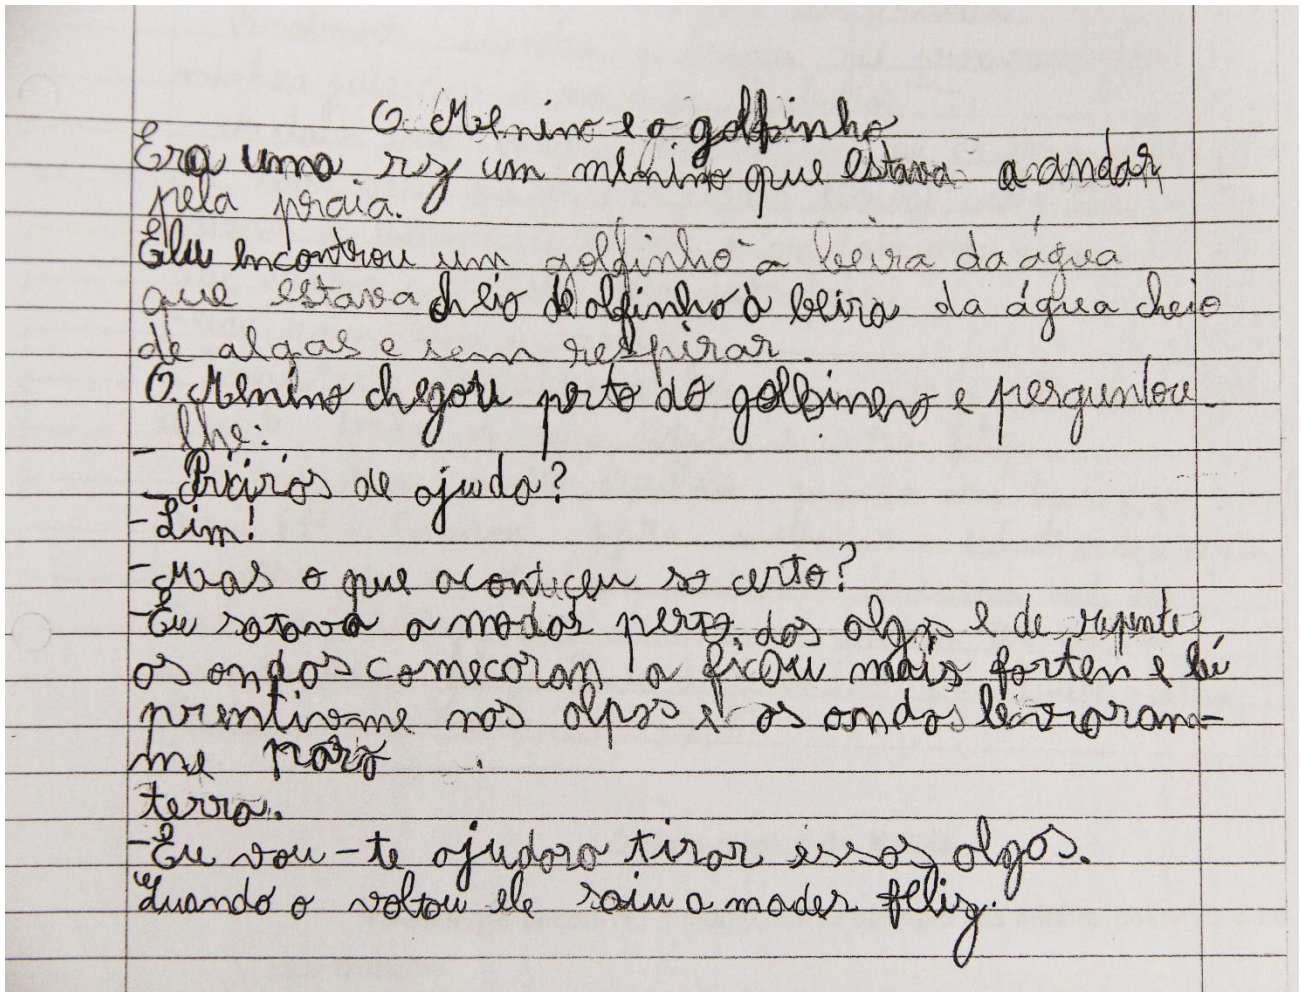 O Menino e o golfinho
Era uma vez um menino que estava a andar
pela praia.
Ele encontrou um golfinho à beira da água
que estava cheio de olfinho à beira da água cheio
de algas e sem respirar.
O Menino chegou perto do golfinho e perguntou-
- lhe:
- de ajuda?
- Sim!
- Mas o que aconteceu so certo?
- Eu a nadar perto das algas e de repente
as ondas começoram a ficou mais forten e
nas algas e as ondas levaram-
me para
terra.
- Eu vou-te ajudara tirar essas algas.
Quando o voltou ele saiu a nadar feliz.